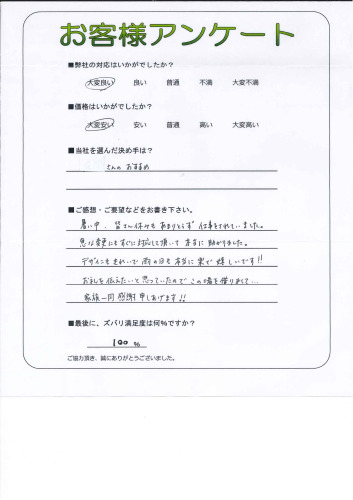 お客様アンケート
■弊社の対応はいかがでしたか？
大変良い 良い 普通 不満 大変不満
■価格はいかがでしたか？
大変安い 安い 普通 高い 大変高い
■当社を選んだ決め手は？
さんの おすすめ
■ご感想・ご要望などをお書き下さい。
暑い中、皆さん休けいもあまりとらず仕事をされていました。
急な変更にもすぐに対応して頂いて本当に助かりました。
デザインもきれいで雨の日も本当に楽で嬉しいです!!
お礼を伝えたいと思っていたのでこの場を借りまして…
家族一同感謝申しあげます!!
■最後に、ズバリ満足度は何%ですか？
100 %
ご協力頂き、誠にありがとうございました。